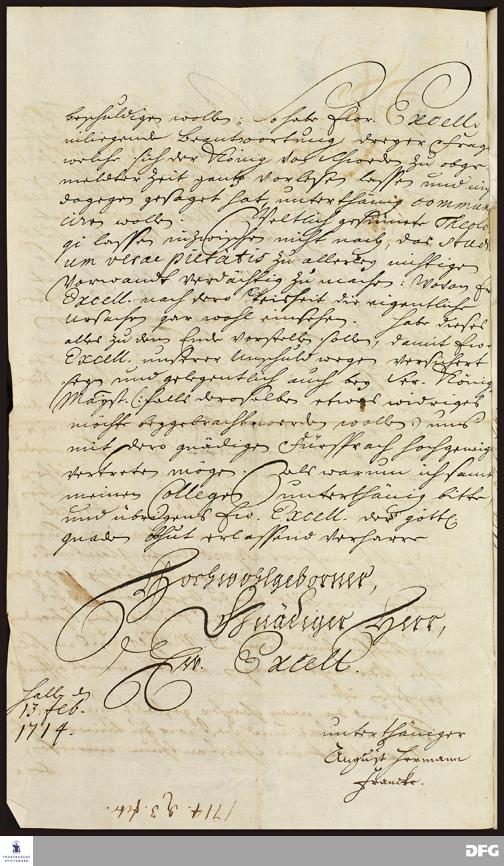 beschuldigen wollen; So habe Ew. Excell.
inliegende Beantwortung derer Frag
welche sich der König von Schweden zu obge
meldter Zeit gantz vorlesen lassen und nic
dagegen gesaget hat, unterthänig commun
ciren wollen. Weltlich gesinnete Theolo
gi lassen inzwischen nicht nach, das Studi
um verae pietatis zu allerley nichtigen
Vorwandt verdächtig zu machen: Wovon E
Excell. nach dero Weisheit die eigentliche
Ursachen gar wohl einsehen. Habe dieses
alles zu dem Ende vorstellen sollen, damit Ew.
Excell. unserer Unschuld wegen versichert
seyn und gelegentlich auch bey Sr. König
Mayst. (: falls deroselben etwas widriges
möchte beygebracht werden wollen :) uns
mit dero gnädigen Fürsprach hochgeneigt
vertreten mögen. Als warum ich samt
meinen Collegen unterthänig bitte,
und übrigens Ew. Excell. der göttl.
gnaden Obhut erlassend verharre
Hochwohlgeborner,
Gnädiger Herr,
Ew. Excell.
Halle d.
13. Feb.
1714.
unterthäniger
August Hermann
Francke.
1714. d. 13. Febr.
FRANCKESCHE
STIFTUNGEN
DFG